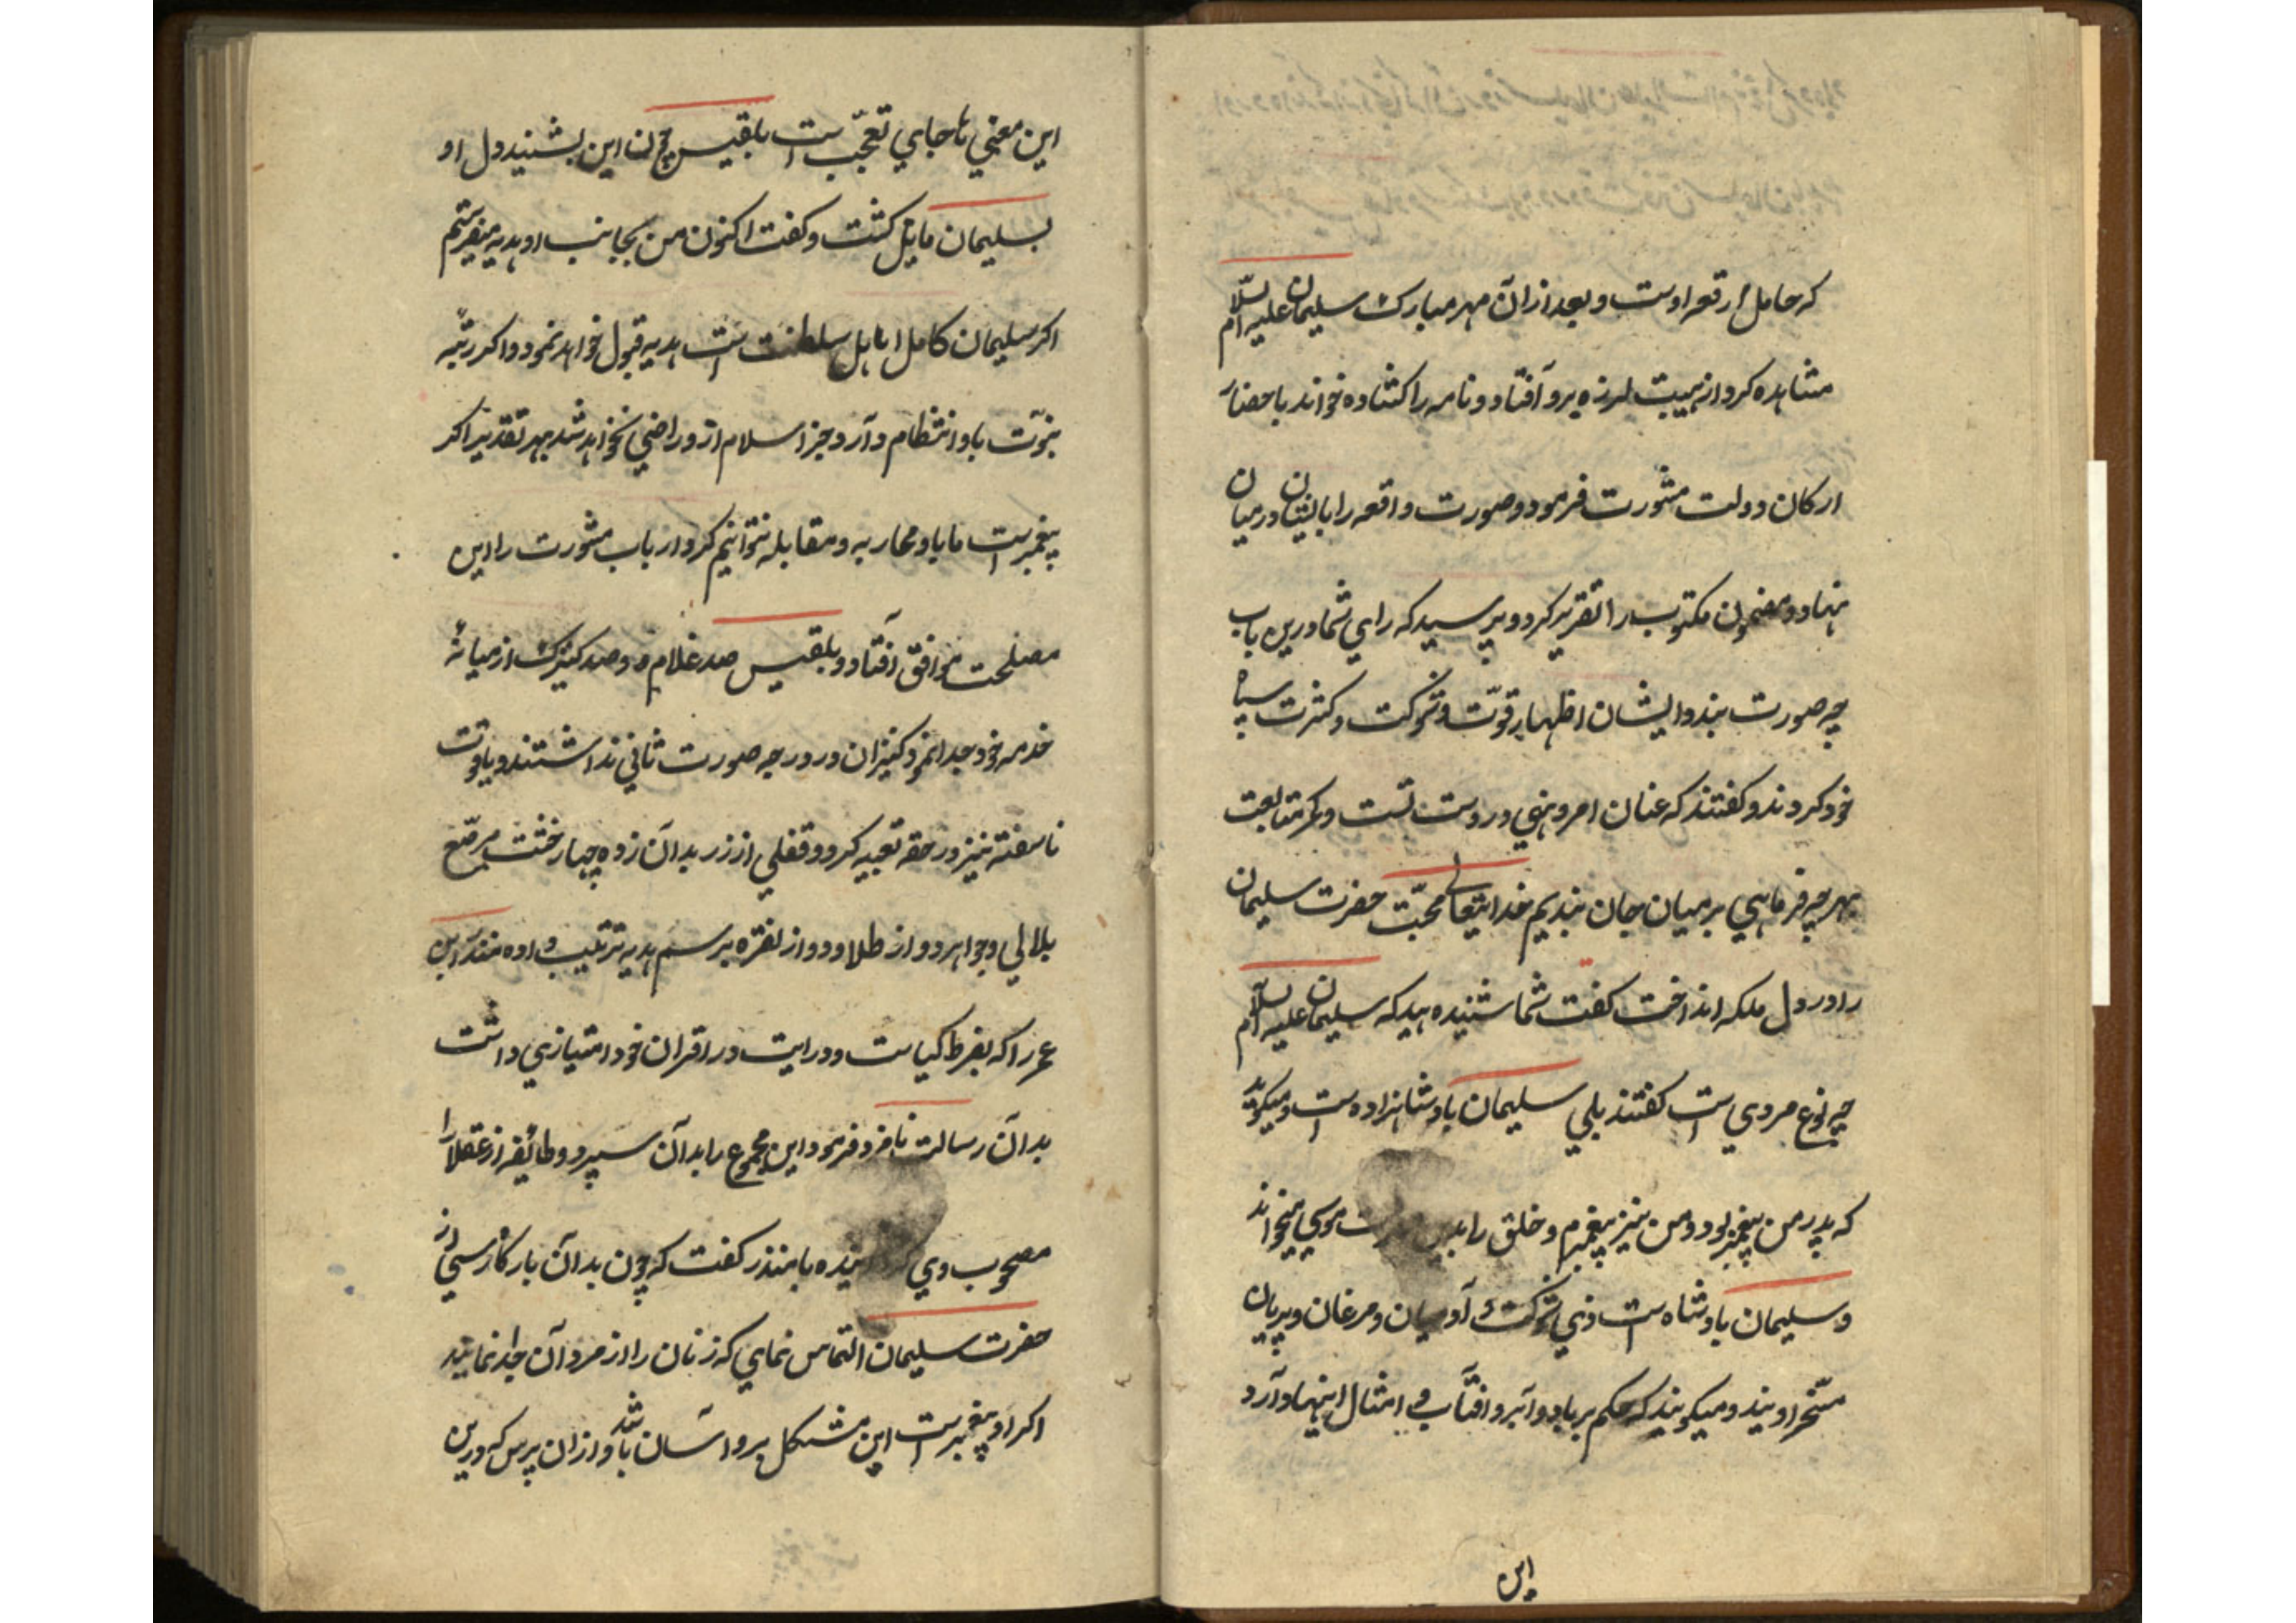 که حامل رقعه اوست و بعد ازان مهر مبارک سلیمان علیه السلام
مشاهده کرد از هیبت لرزه برو افتاد و نامه را کشاده خواند باحضار
ارکان دولت مشورت فرمود و صورت واقعه را با ایشان درمیان
نهاد و مضمون مکتوب را تقریر کرد و پرسید که رای شما درین باب
چه صورت بندد ایشان اظهار قوّت و شوکت و کثرت سپاه
خود کردند و کفتند که عنان امر و نهی در دست تست و کمر متابعت
بهر چه فرمایی برمیان جان بندیم خدایتعالی محبّت حضرت سلیمان
را در دل ملکه انداخت کفت شما شنیده اید که سلیمان علیه السلام
چه نوع مردی است کفتند بلی سلیمان بادشاهزاده است و میکوید
که پدر من پیغمبر بود و من نیز پیغمبرم و خلق را بدین موسی میخواند
و سلیمان بادشاه است ذی شوکت آدمیان و مرغان و پریان
مسّخر اویند و میکویند که حکم بر باد و ابر و افتاب و امثال اینها دارد
این
این معنی ها جای تعجّب است بلقیس چون این بشنید دل او
بسلیمان مایل کشت و کفت اکنون من بجانب او هدیه میفرستم
اکر سلیمان کامل اهل سلطنت است هدیه قبول خواهد نمود و اکر رتبه
نبوّت باو انتظام دارد جز اسلام ازو راضی نخواهد شد بهر تقدیر اکر
پیغمبر است ما باو محاربه و مقابله نتوانیم کرد ارباب مشورت را این
مصلحت موافق افتاد و بلقیس صد غلام و صد کنیزک از میانه
خدمه خود جدا نمود کنیزان در درجه صورت ثانی نداشتند و یاقوت
ناسفته نیز در حقه تعبیه کرد و قفلی از زر بدان زده چهار خشت مرصّع
بلالی و جواهر دو از طلا و دو از نقره برسم هدیه ترتیب داده منذر ابن
عمر را که بفرط کیاست و درایت در اقران خود امتیازی داشت
بدان رسالت نامزد فرمود و این مجموع را بدان سپرد و طائفه از عقلا را
مصحوب وی با منذر کفت که چون بدان بارکاه رسی از
حضرت سلیمان التماس نمای که زنان را از مردان جدا نمایند
اکر او پیغمبر است این مشکل برو اسان باشد و ازان پرس که درین